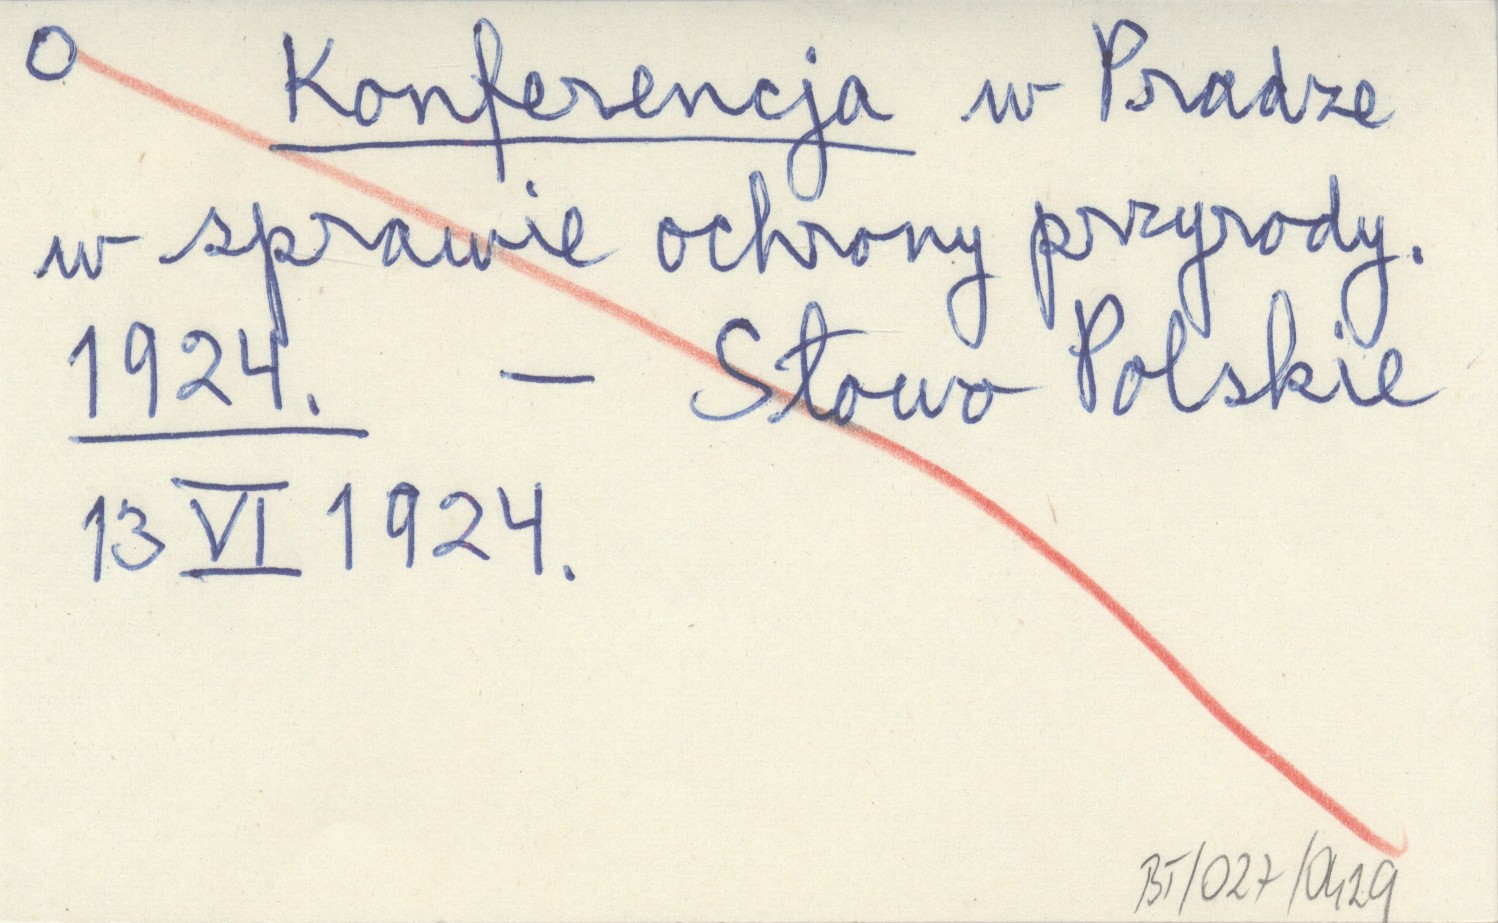 O Konferencja w Pradze
w sprawie ochrony przyrody.
1924. — Słowo Polskie
13 VI 1924.
BT/027/0429